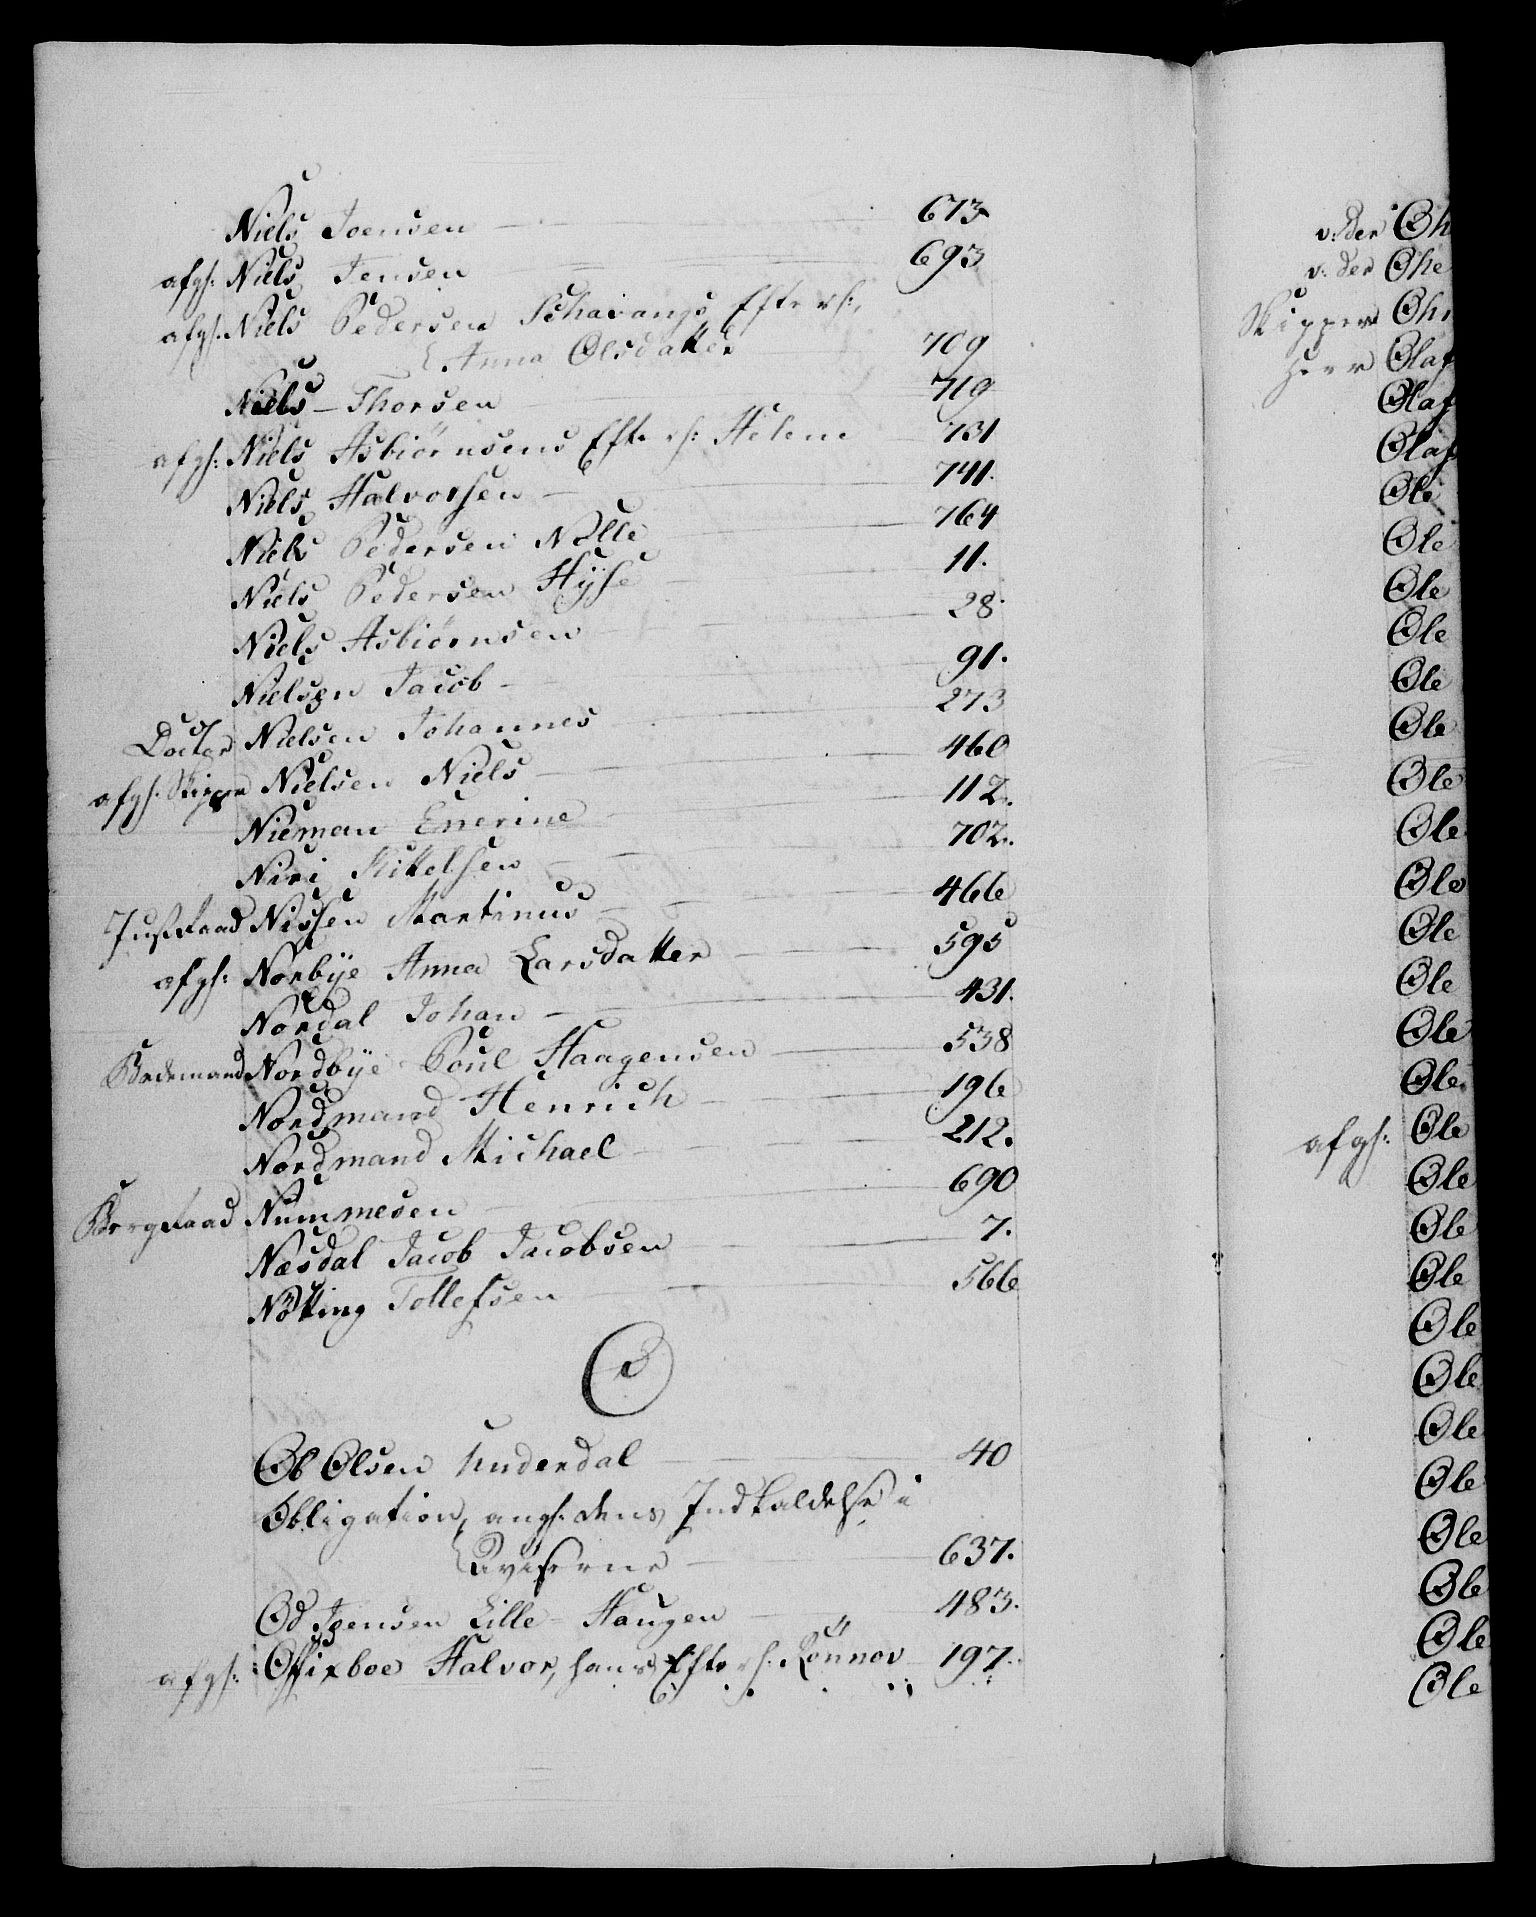 Niels Joensen — 673
afgh: Niels Jensen — 693
afgh: Niels Pedersen Schavangs Efterh:
Anna Olsdatter 709
Niels Thorsen 719
afgh: Niels Asbiørnsens Efterh: Helene 731
Niels Halvorsen — 741.
Niels Pedersen Nelle 764
Niels Pedersen Hÿse 11.
Niels Asbiørnsen — 28
Nielsen Jacob — 91.
Doctor Nielsen Johannes 273
afgh: Skipper Nielsen Niels — 460
Nieman Enerine 112.
Niri Kittelsen — 702.
Justraad Nissen Martinus — 466
afgh: Norbÿe Anna Larsdatter — 595
Nordal Johan — 431.
Bademand Nordbÿe Poul Haagensen — 538
Nordmand Henrich 196
Nordmand Michael — 212.
Bergraad Nummesen — 690
Næsdal Jacob Jacobsen — 7.
Nötting Tollefsen — 566
O
Ob Olsen Huderdal — 40
Obligation, angh: dens Indkaldelse i
Aviserne — 637.
Od Joensen Lille-Haugen — 483.
afgh: Offixboe Halvor, hans Efterh: Rönnov 197.
v: der Oh
v: der Ohe
Skipper Ohr
Herr Olaf
Olaf
Olaf
Ole
Ole
Ole
Ole
Ole
Ole
Ole
Ole
Ole
Ole
Ole
Ole
Ole
afgh: Ole
Ole
Ole
Ole
Ole
Ole
Ole
Ole
Ole
Ole
Ole
Ole